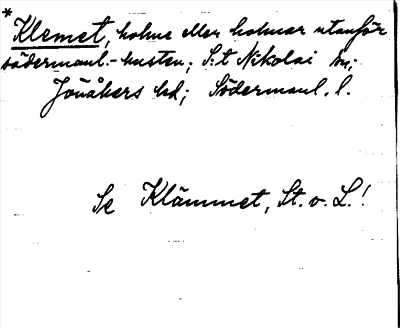 * Klemet, holme eller holmar utanför
södermanl.-kusten; S:t Nikolai sn;
Jönåkers hd; Södermanl. l.
Se Klämmet, St. o. L.!